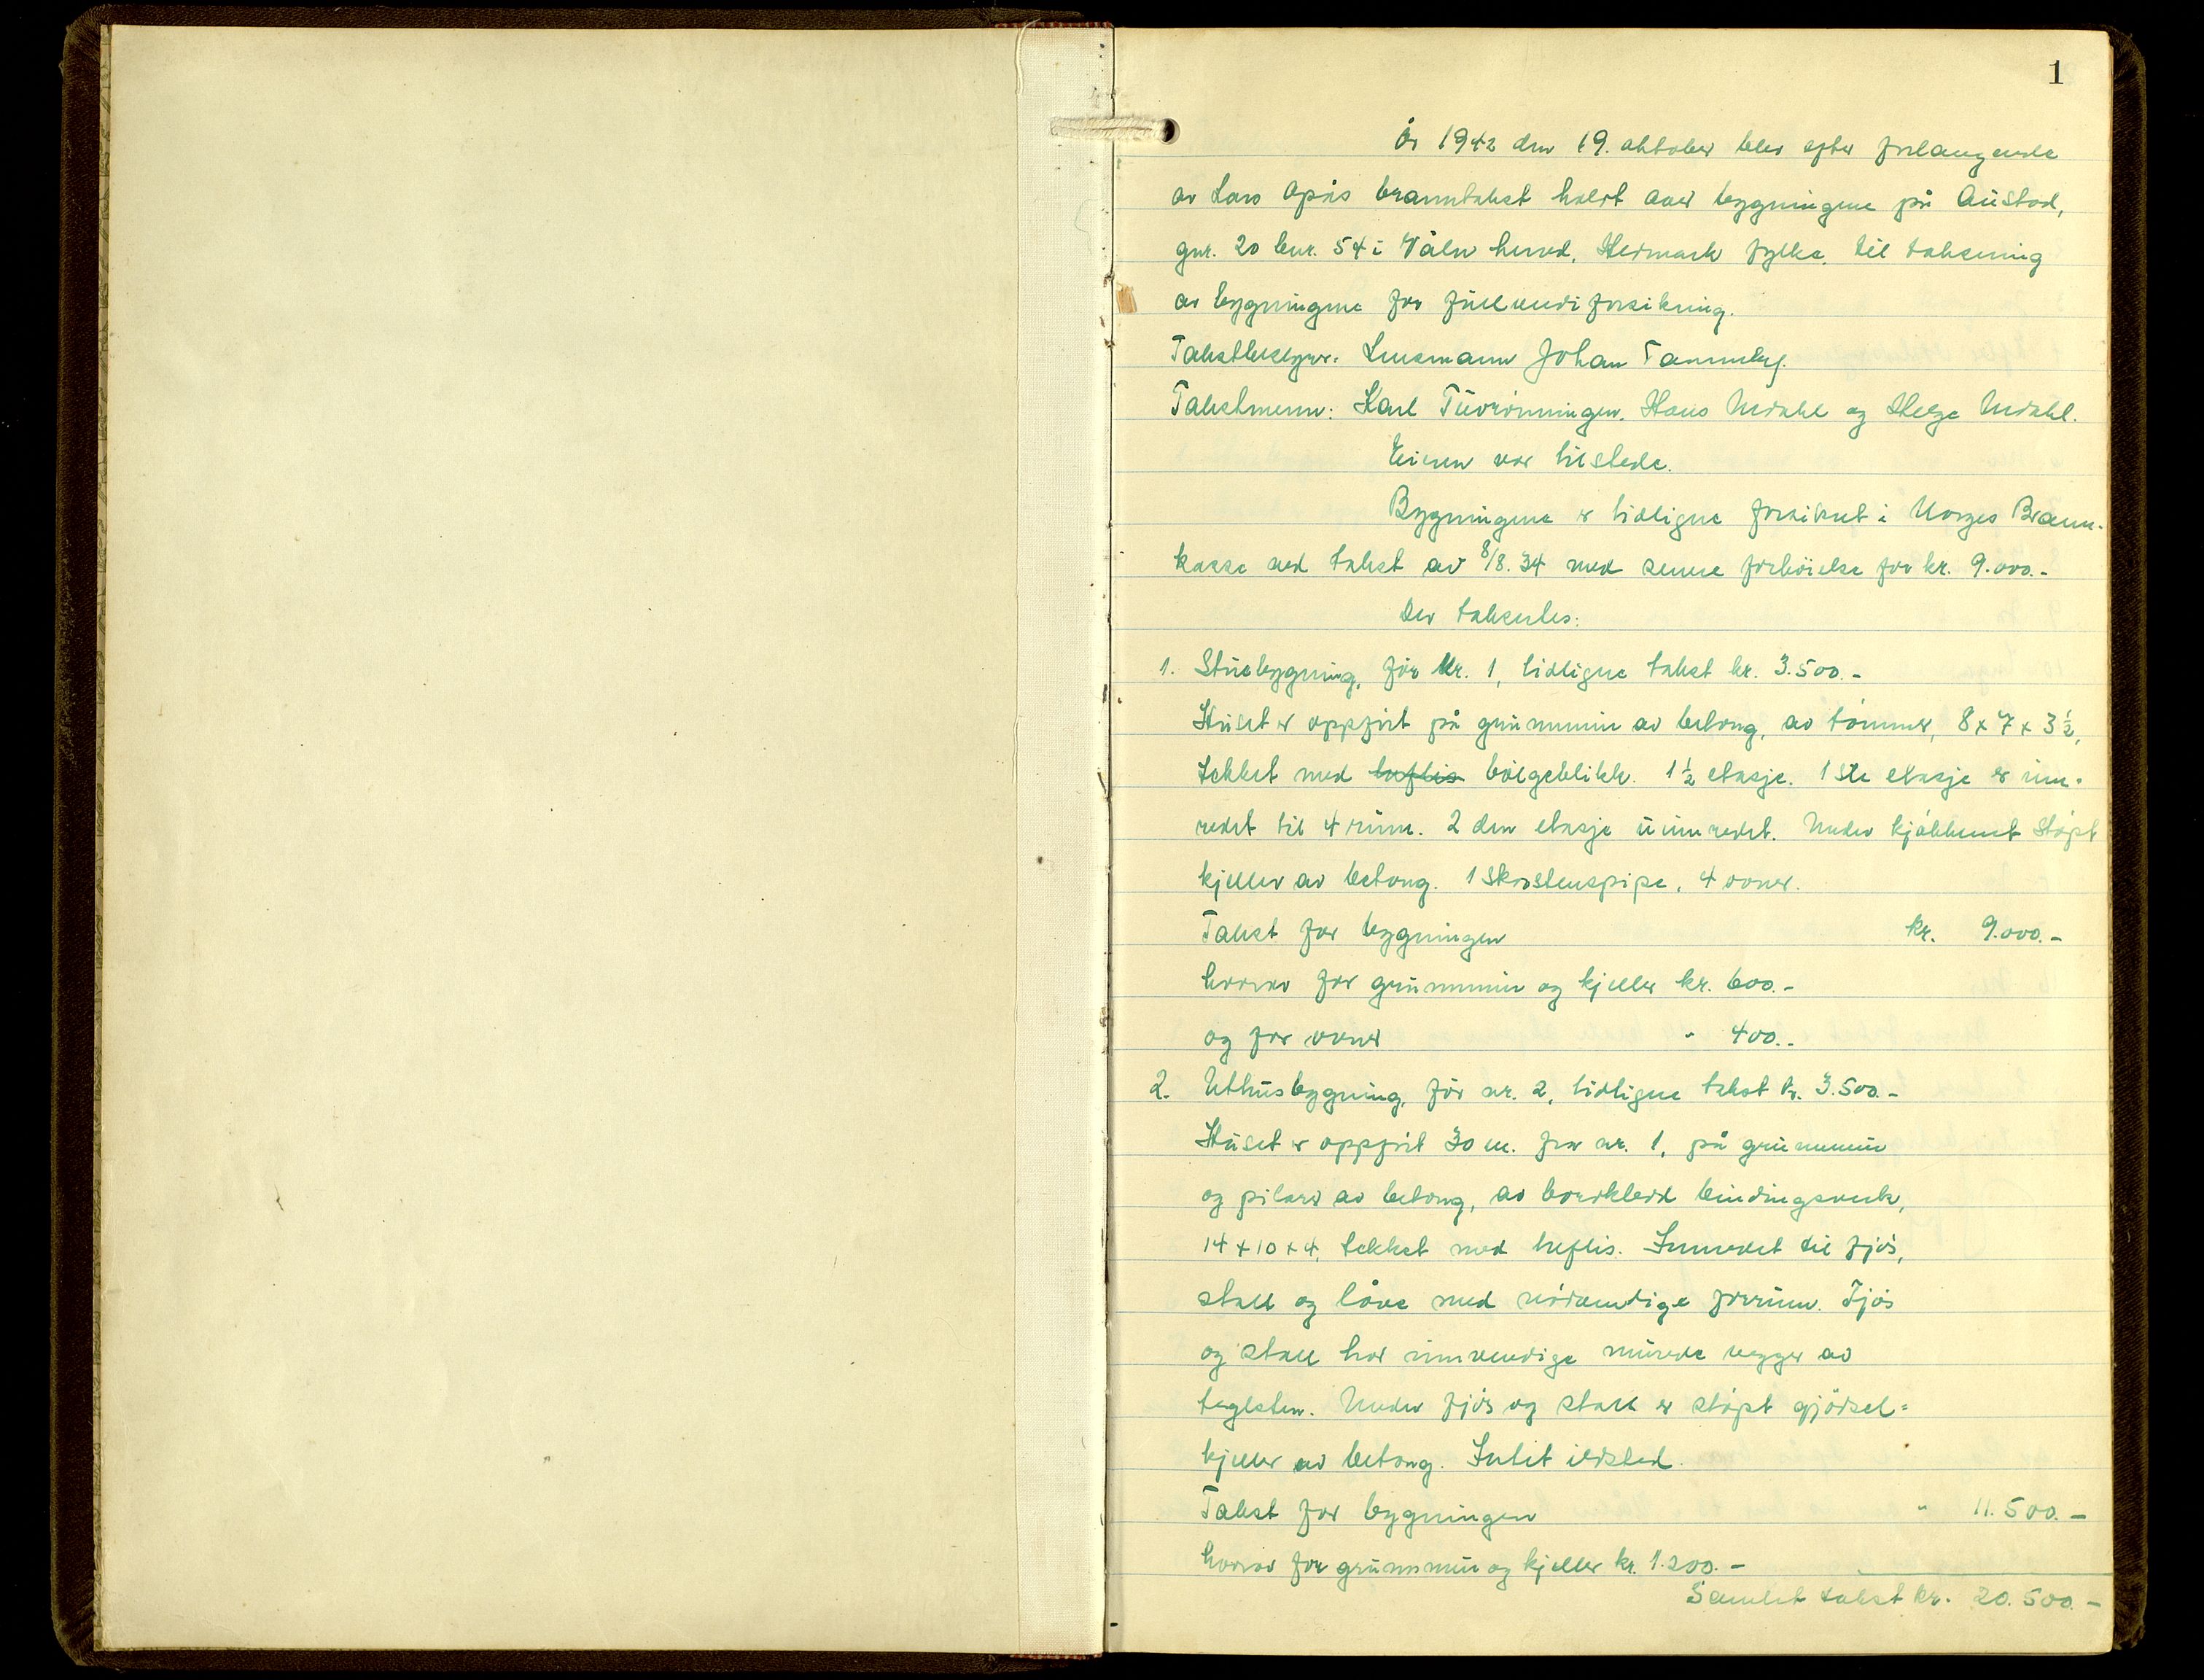 1
År 1942 den 19. oktober blev efter forlangende
av Lars Opås branntakst holdt over bygningene på Austad,
gnr. 20 bnr. 54 i Våler herred, Hedmark fylke, til taksering
av bygningene for fullverdiforsikring.
Takstbestyrer: Lensmann Johan Tannneby.
Takstmenn: Karl Tuvrönningen, Hans Urdahl og Helge Urdahl.
Eieren var tilstede.
Bygningene er tidligere forsikret i Norges Brann-
kasse ved takst av 8/8. 34 med senere forhöielse for kr. 9.000.-
Der takseртes:
1. Stuebygning, för Nr. 1, tidligere takst kr. 3.500.-
Huset er oppfört på grunnmur av betong, av tömmer, 8 x 7 x 3½,
tekket med huflis bölgeblikk. 1½ etasje. 1ste etasje er inn-
redet til 4 rum. 2den etasje uinnredet. Under kjökkenet stöpt
kjeller av betong. 1 skorstenspipe, 4 ovner.
Takst for bygningen kr. 9.000.-
hvorav for grunnmur og kjeller kr. 600.-
og for ovner " 400.-
2. Uthusbygning, för nr. 2, tidligere takst kr. 3.500.-
Huset er oppfört 30 m. fra nr. 1, på grunnmur
og pilarer av betong, av bordkledd bindingsverk,
14 x 10 x 4, tekket med huflis. Innredet til fjös,
stall og låve med nödvendige forrum. Fjös
og stall har innvendige murede vegger av
teglsten. Under fjös og stall er stöpt gjödsel-
kjeller av betong. Intet ildsted.
Takst for bygningen " 11.500.-
hvorav for grunnmur og kjeller kr. 1.200.-
Samlet takst kr. 20.500.-